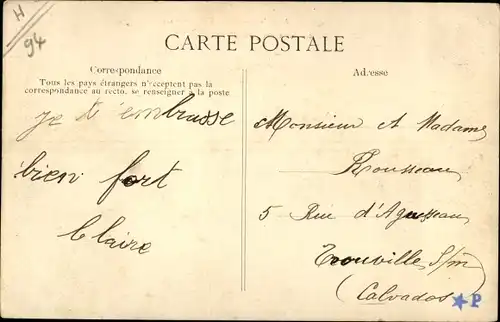 H
94
CARTE POSTALE
Correspondance
Tous les pays étrangers n'acceptent pas la
correspondance au recto, se renseigner à la poste
je t'embrasse
bien fort
Claire
Adresse
Monsieur et Madame
Rousseau
5 Rue d'Aguesseau
Trouville S/m
(Calvados)
P